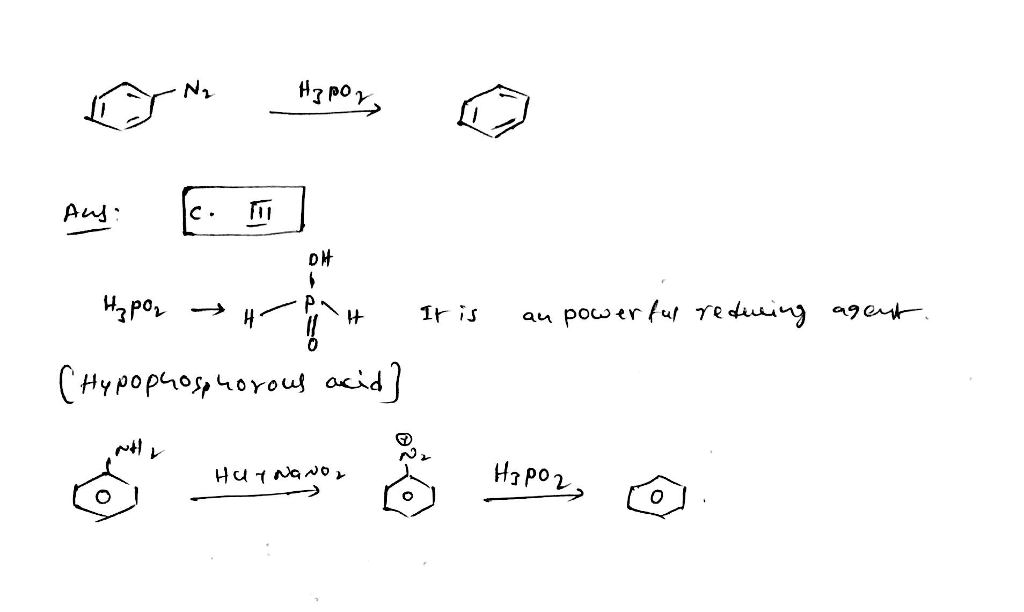 N2 H3PO2
Ans: C. III
OH
H3PO2 → H P H It is an powerful reducing agent.
O
(Hypophosphorous acid]
NH2 HCl + NaNO2 ⊕ N2 H3PO2